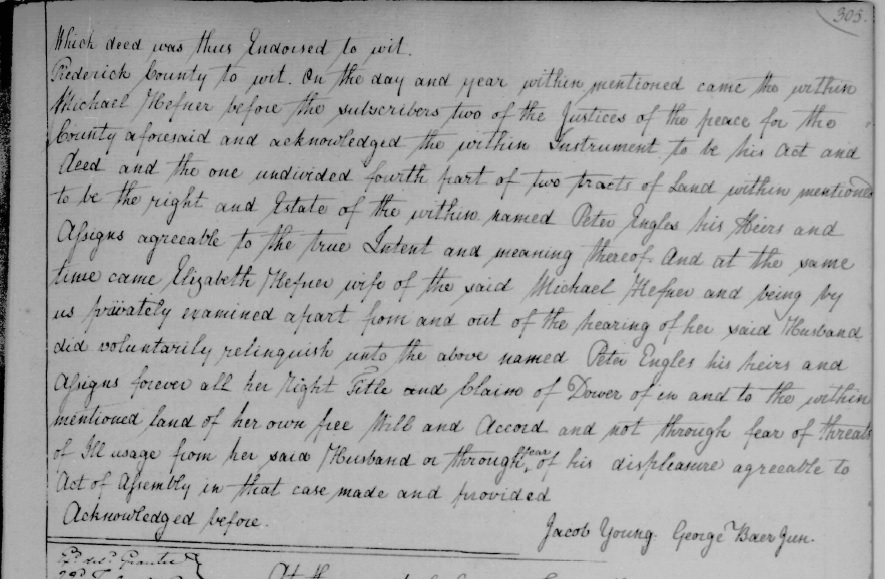 305.
Which deed was thus Endorsed to wit.
Frederick County to wit. On the day and year within mentioned came the within
Michael Hefner before the subscribers two of the Justices of the peace for the
County aforesaid and acknowledged the within Instrument to be his Act and
deed and the one undivided fourth part of two tracts of Land within mentioned
to be the right and Estate of the within named Peter Engles his Heirs and
Assigns agreeable to the true Intent and meaning thereof. And at the same
time came Elizabeth Hefner wife of the said Michael Hefner and being by
us privately examined apart from and out of the hearing of her said Husband
did voluntarily relinquish unto the above named Peter Engles his heirs and
Assigns forever all her Right Title and Claim of Dower of in and to the within
mentioned land of her own free Will and Accord and not through fear of threats
of Ill usage from her said Husband or through fear of his displeasure agreeable to
Act of Assembly in that case made and provided
Acknowledged before.
Jacob Young. George Baer Jun.
At the